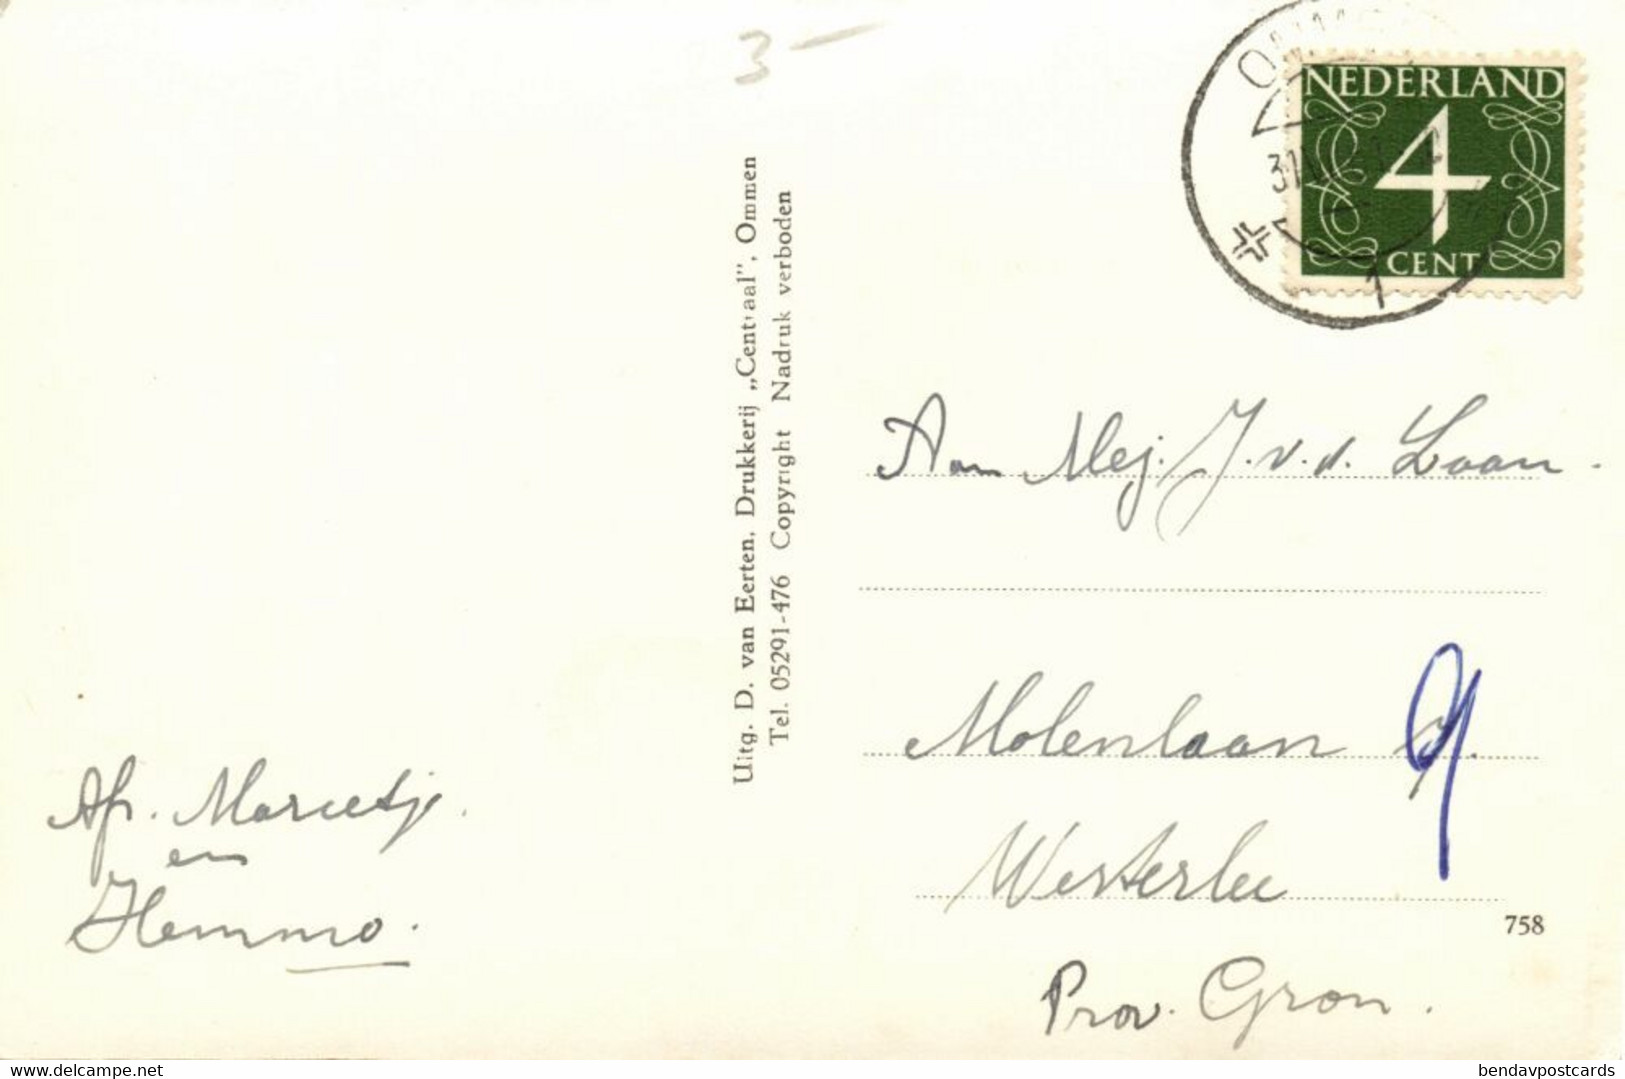 3 -
NEDERLAND
4
CENT
1
Uitg. D. van Eerten, Drukkerij „Centraal”, Ommen
Tel. 05291-476 Copyright Nadruk verboden
Aan Mej. J. v. d. Laan.
Molenlaan 9
Westerlee
758
Prov. Gron.
Afz. Marcetje.
en
Hemmo.
delcampe.net
bendavpostcards